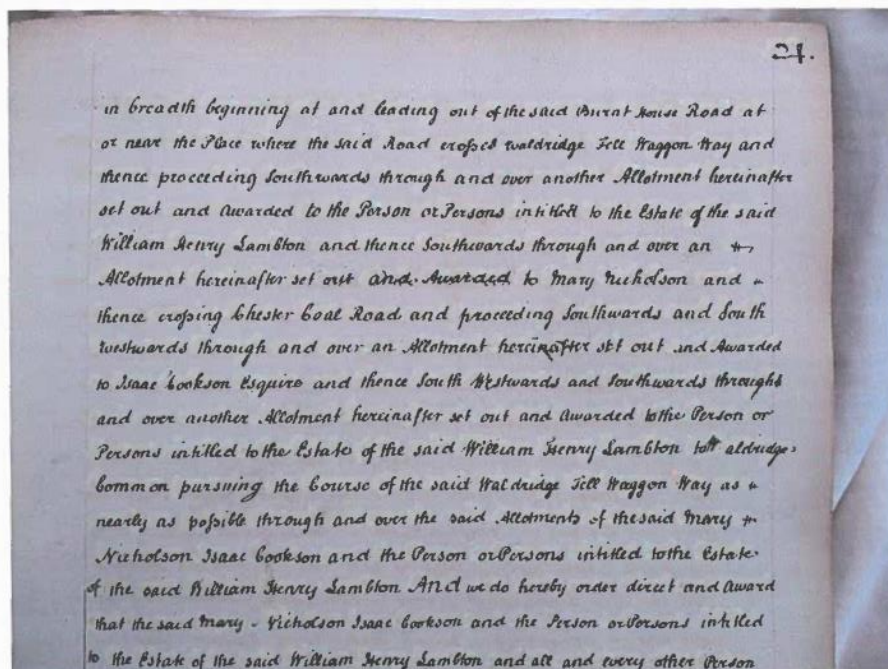 21.
in breadth beginning at and leading out of the said Burnt House Road at
or near the Place where the said Road crosses Waldridge Fell Waggon Way and
thence proceeding Southwards through and over another Allotment hereinafter
set out and Awarded to the Person or Persons intitled to the Estate of the said
William Henry Lambton and thence Southwards through and over an
Allotment hereinafter set out and Awarded to Mary Nicholson and
thence crossing Chester Coal Road and proceeding Southwards and South
Westwards through and over an Allotment hereinafter set out and Awarded
to Isaac Cookson Esquire and thence South Westwards and Southwards through
and over another Allotment hereinafter set out and Awarded to the Person or
Persons intitled to the Estate of the said William Henry Lambton to Waldridge
Common pursuing the Course of the said Waldridge Fell Waggon Way as
nearly as possible through and over the said Allotments of the said Mary
Nicholson Isaac Cookson and the Person or Persons intitled to the Estate
of the said William Henry Lambton And we do hereby order direct and Award
that the said Mary Nicholson Isaac Cookson and the Person or Persons intitled
to the Estate of the said William Henry Lambton and all and every other Person